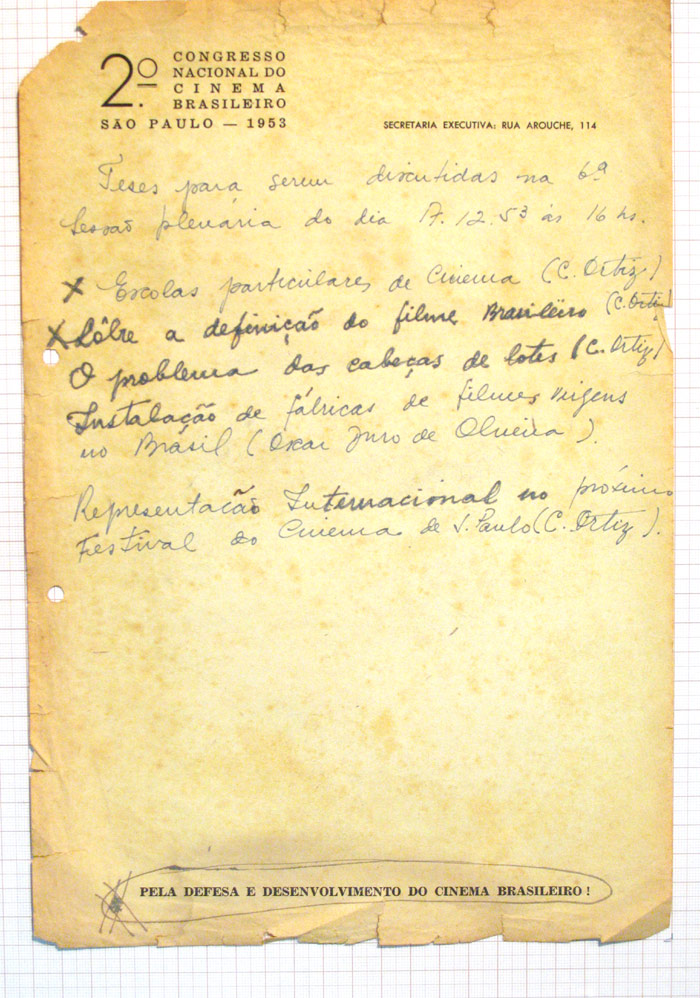 2.º
CONGRESSO
NACIONAL DO
CINEMA
BRASILEIRO
SÃO PAULO — 1953
SECRETARIA EXECUTIVA: RUA AROUCHE, 114
Teses para serem discutidas na 6ª
Sessão plenária do dia 17.12.53 às 16 hs.
X Escolas particulares de Cinema (C. Ortiz)
X Sôbre a definição do filme Brasileiro (C. Ortiz)
O problema das cabeças de lotes (C. Ortiz)
Instalação de fábricas de filmes virgens
no Brasil (Oscar de Oliveira).
Representação Internacional no próximo
Festival do Cinema de S. Paulo (C. Ortiz).
PELA DEFESA E DESENVOLVIMENTO DO CINEMA BRASILEIRO !